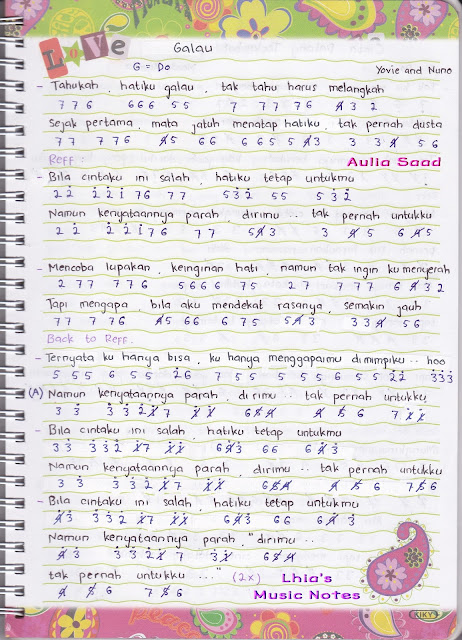 LOVE
Galau
G = Do
Yovie and Nuno
- Tahukah, hatiku galau, tak tahu harus melangkah
7 7 6 6 6 6 5 5 7 7 7 7 6 4̸ 3 2
Sejak pertama, mata jatuh menatap hatiku, tak pernah dusta
7 7 7 7 6 4̸ 5 6 6 6 6 5 5 4̸ 3 3 3 4̸ 5 6
Reff :
Aulia Saad
- Bila cintaku ini salah, hatiku tetap untukmu
2 2̇ 2̇ 2̇ 1̇ 7 6 7 7 5 3̇ 2 5 5 5 3̇ 2̇
Namun kenyataannya parah, dirimu.. tak pernah untukku
2 2̇ 2̇ 2̇ 1̇ 7 6 7 7 5 4̸ 3 3 4̸ 5 6 4̸ 5
- Mencoba lupakan, keinginan hati, namun tak ingin ku menyerah
2 7 7 7 7 6 5 6 6 6 7 5 2 7 7 7 7 6 4̸ 3 2
Tapi mengapa, bila aku mendekat rasanya, semakin jauh
7 7 7 7 6 4̸ 5 6 6 6 7 5 5 4̸ 3 3 3 4̸ 5 6
Back to Reff.
- Ternyata ku hanya bisa, ku hanya menggapaimu dimimpiku.. hoo
5 5 5 5 6 5 5 2̇ 6 7 5 5 5 5 5 5 6 5 5 2̇ 2̇ 3̇ 3̇ 3̇
(A) Namun kenyataannya parah, dirimu.. tak pernah untukku
- Bila cintaku ini salah, hatiku tetap untukmu
Namun kenyataannya parah, dirimu.. tak pernah untukku
- Bila cintaku ini salah, hatiku tetap untukmu
Namun kenyataannya parah, "dirimu..
tak pernah untukku ..." (2x)
Lhia's
Music Notes
KIKY